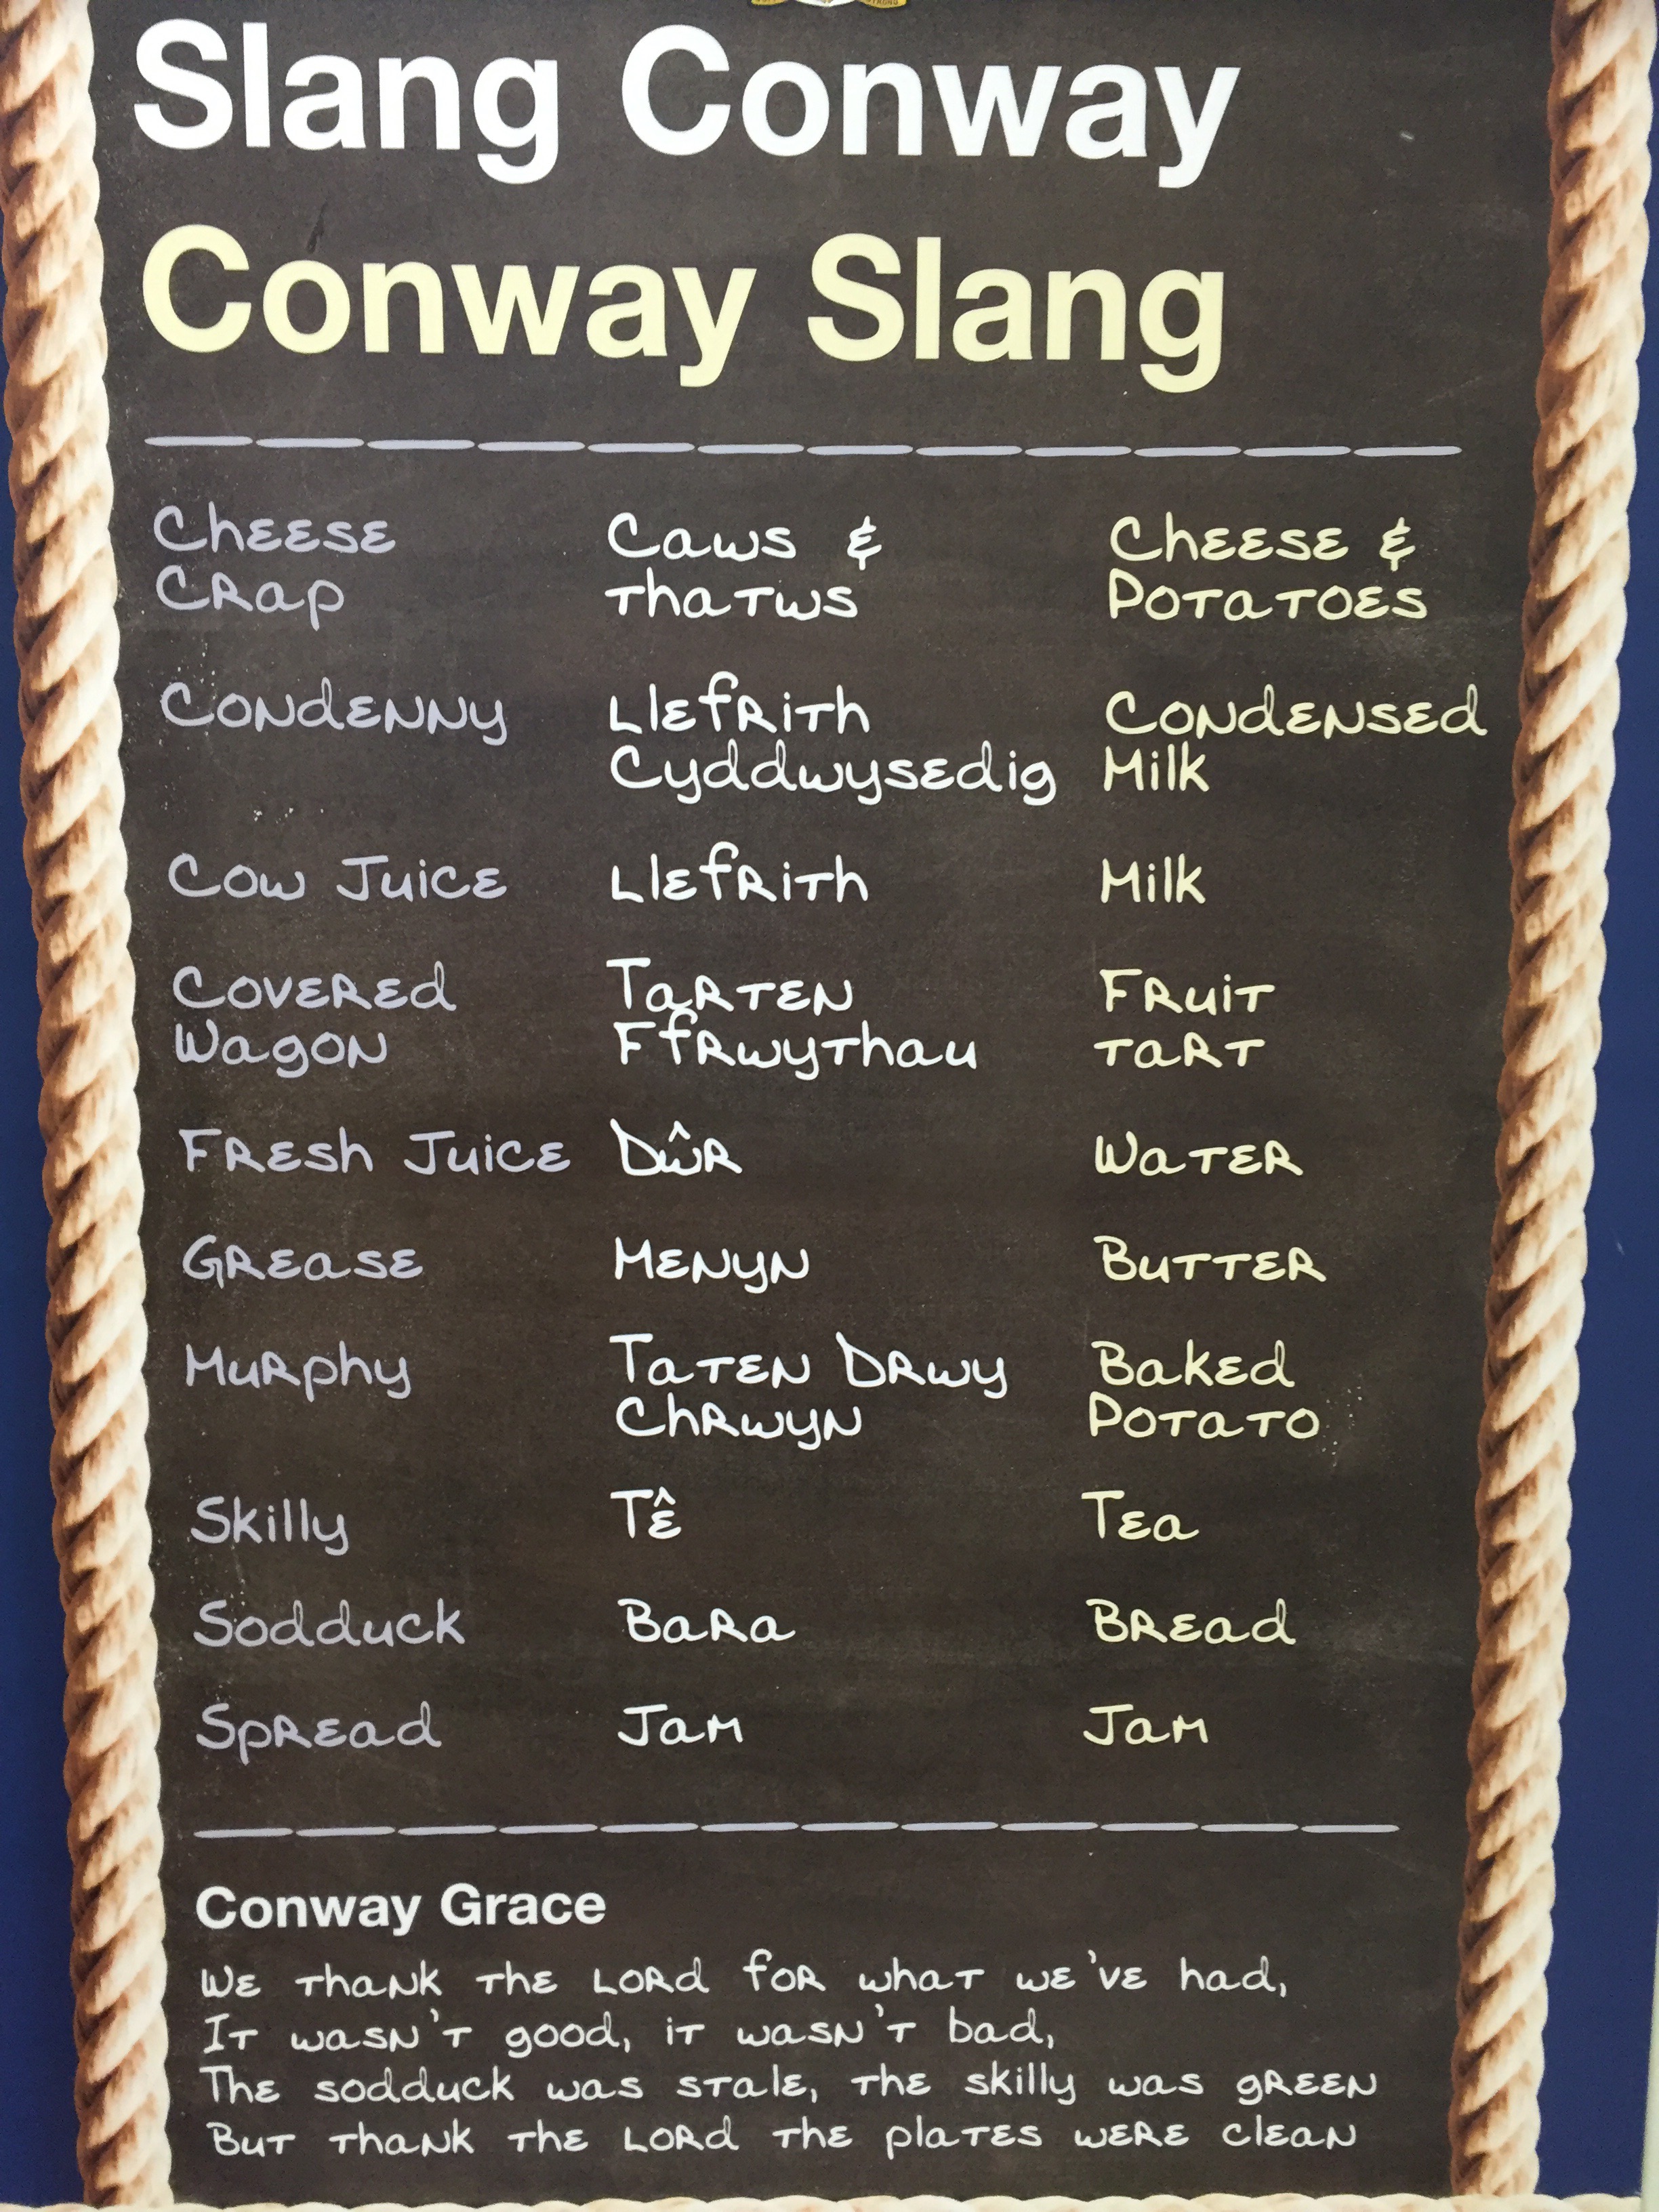 STRONG
Slang Conway
Conway Slang
Cheese Caws & Cheese &
Crap thatws Potatoes
Condenny Llefrith Condensed
Cyddwysedig Milk
Cow Juice Llefrith Milk
Covered Tarten Fruit
Wagon Ffrwythau tart
Fresh Juice Dŵr Water
Grease Menyn Butter
Murphy Taten Drwy Baked
Chrwyn Potato
Skilly Tê Tea
Sodduck Bara Bread
Spread Jam Jam
Conway Grace
We thank the Lord for what we've had,
It wasn't good, it wasn't bad,
The sodduck was stale, the skilly was green
But thank the Lord the plates were clean